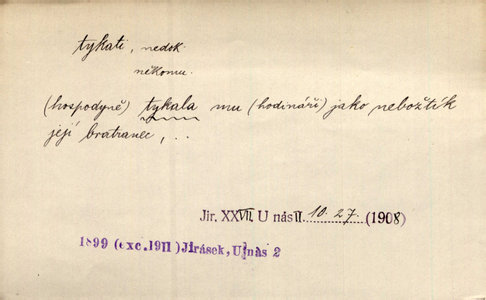 tykati, nedok.
někomu.
(hospodyně) tykala mu (hodináři) jako nebožtík
její bratranec, ..
Jir. XXVII. U nás II. 10. 27. (1908)
1899 (exc.1911) Jirásek, U nás 2